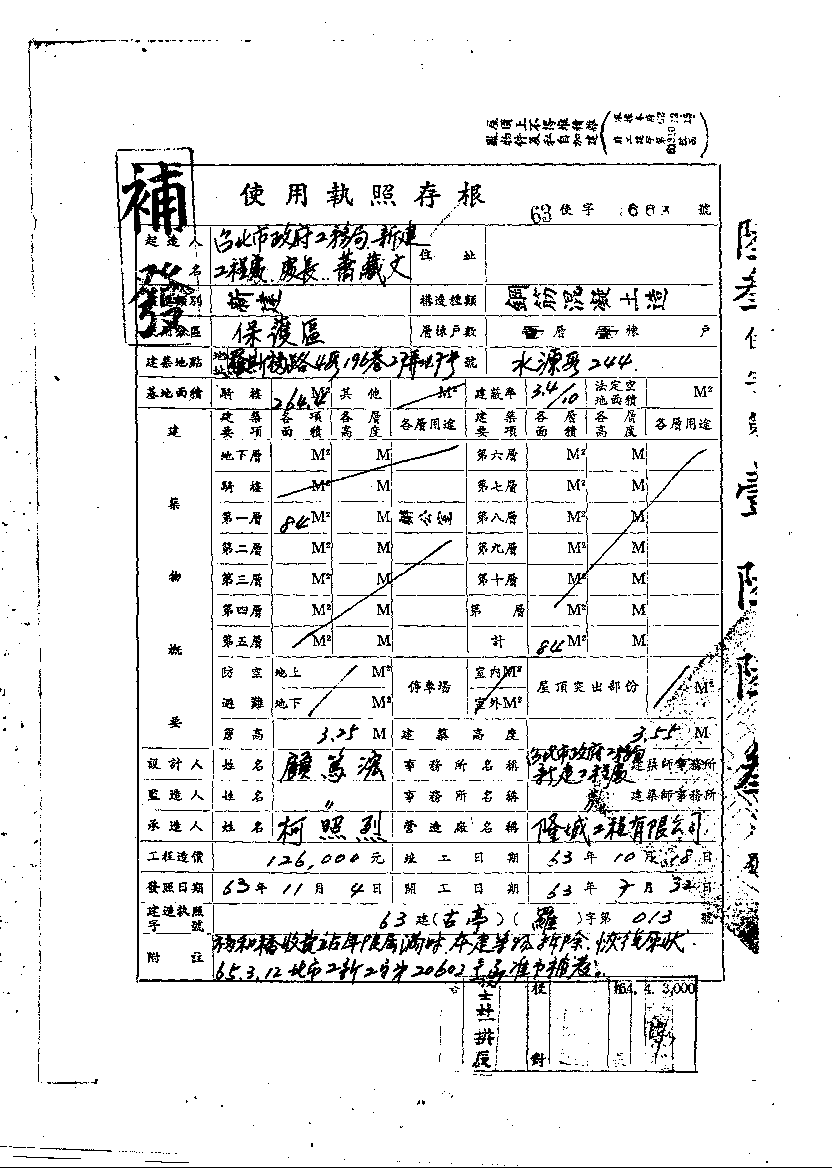 補發
使用執照存根
63 使字 號
起造人 台北市政府工務局新建 住址
名 工程處 處長 蕭藏文
別 新建 構造種類 鋼筋混凝土造
區 保護區 層棟戶數 壹層 壹棟 戶
建築地點 地址 羅斯福路4段196巷 號 水源段244
基地面積 騎樓 264.4 M² 其他 M² 建蔽率 3.4/10 法定空地面積 M²
建築物概要
建築要項 各項面積 各層高度 各層用途 建築要項 各層面積 各層高度 各層用途
地下層 M² M 第六層 M² M
騎樓 M² M 第七層 M² M
第一層 84 M² M 辦公室 第八層 M² M
第二層 M² M 第九層 M² M
第三層 M² M 第十層 M² M
第四層 M² M 第 層 M² M
第五層 M² M 計 84 M² M
防空避難 地上 M² 停車場 室內M² 屋頂突出部份 M²
地下 M² 室外M²
簷高 3.25 M 建築高度 3.55 M
設計人 姓名 顧篤浤 事務所名稱 台北市政府工務局新建工程處 建築師事務所
監造人 姓名 〃 事務所名稱 建築師事務所
承造人 姓名 柯照烈 營造廠名稱 隆城工程有限公司
工程造價 126,000 元 竣工日期 63年10月18日
發照日期 63年11月4日 開工日期 63年7月 日
建造執照字號 63建(古亭)(羅)字第013號
附註 橋收費站年限屆滿時,本建築物拆除,恢復原狀.
65.3.12北市工新 字第20602號函准予補發.
64.4.3,000